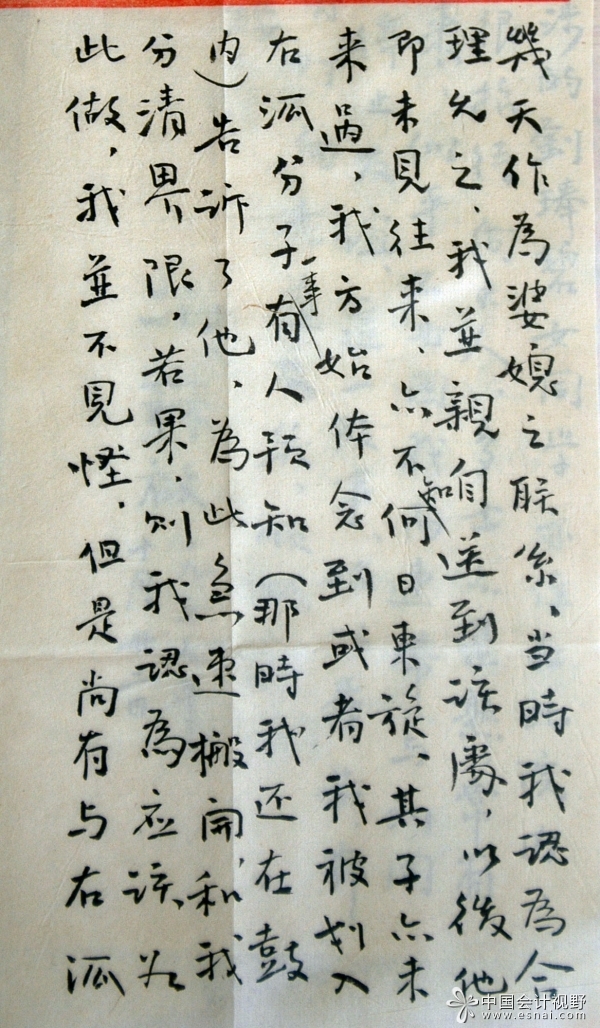 幾天作為婆媳之联系、当時我認為合
理允之、我並親自送到該處，以後他
即未見往来、亦不知何日東旋、其子亦未
来過，我方始体念到或者我被划入
右泒分子一事有人預知（那時我还在鼓
内）告訴了他、為此急速搬開，和我
分清界限，若果，则我認為应該、
此做，我並不見怪，但是尚有与右泒
中国会计视野
www.esnai.com